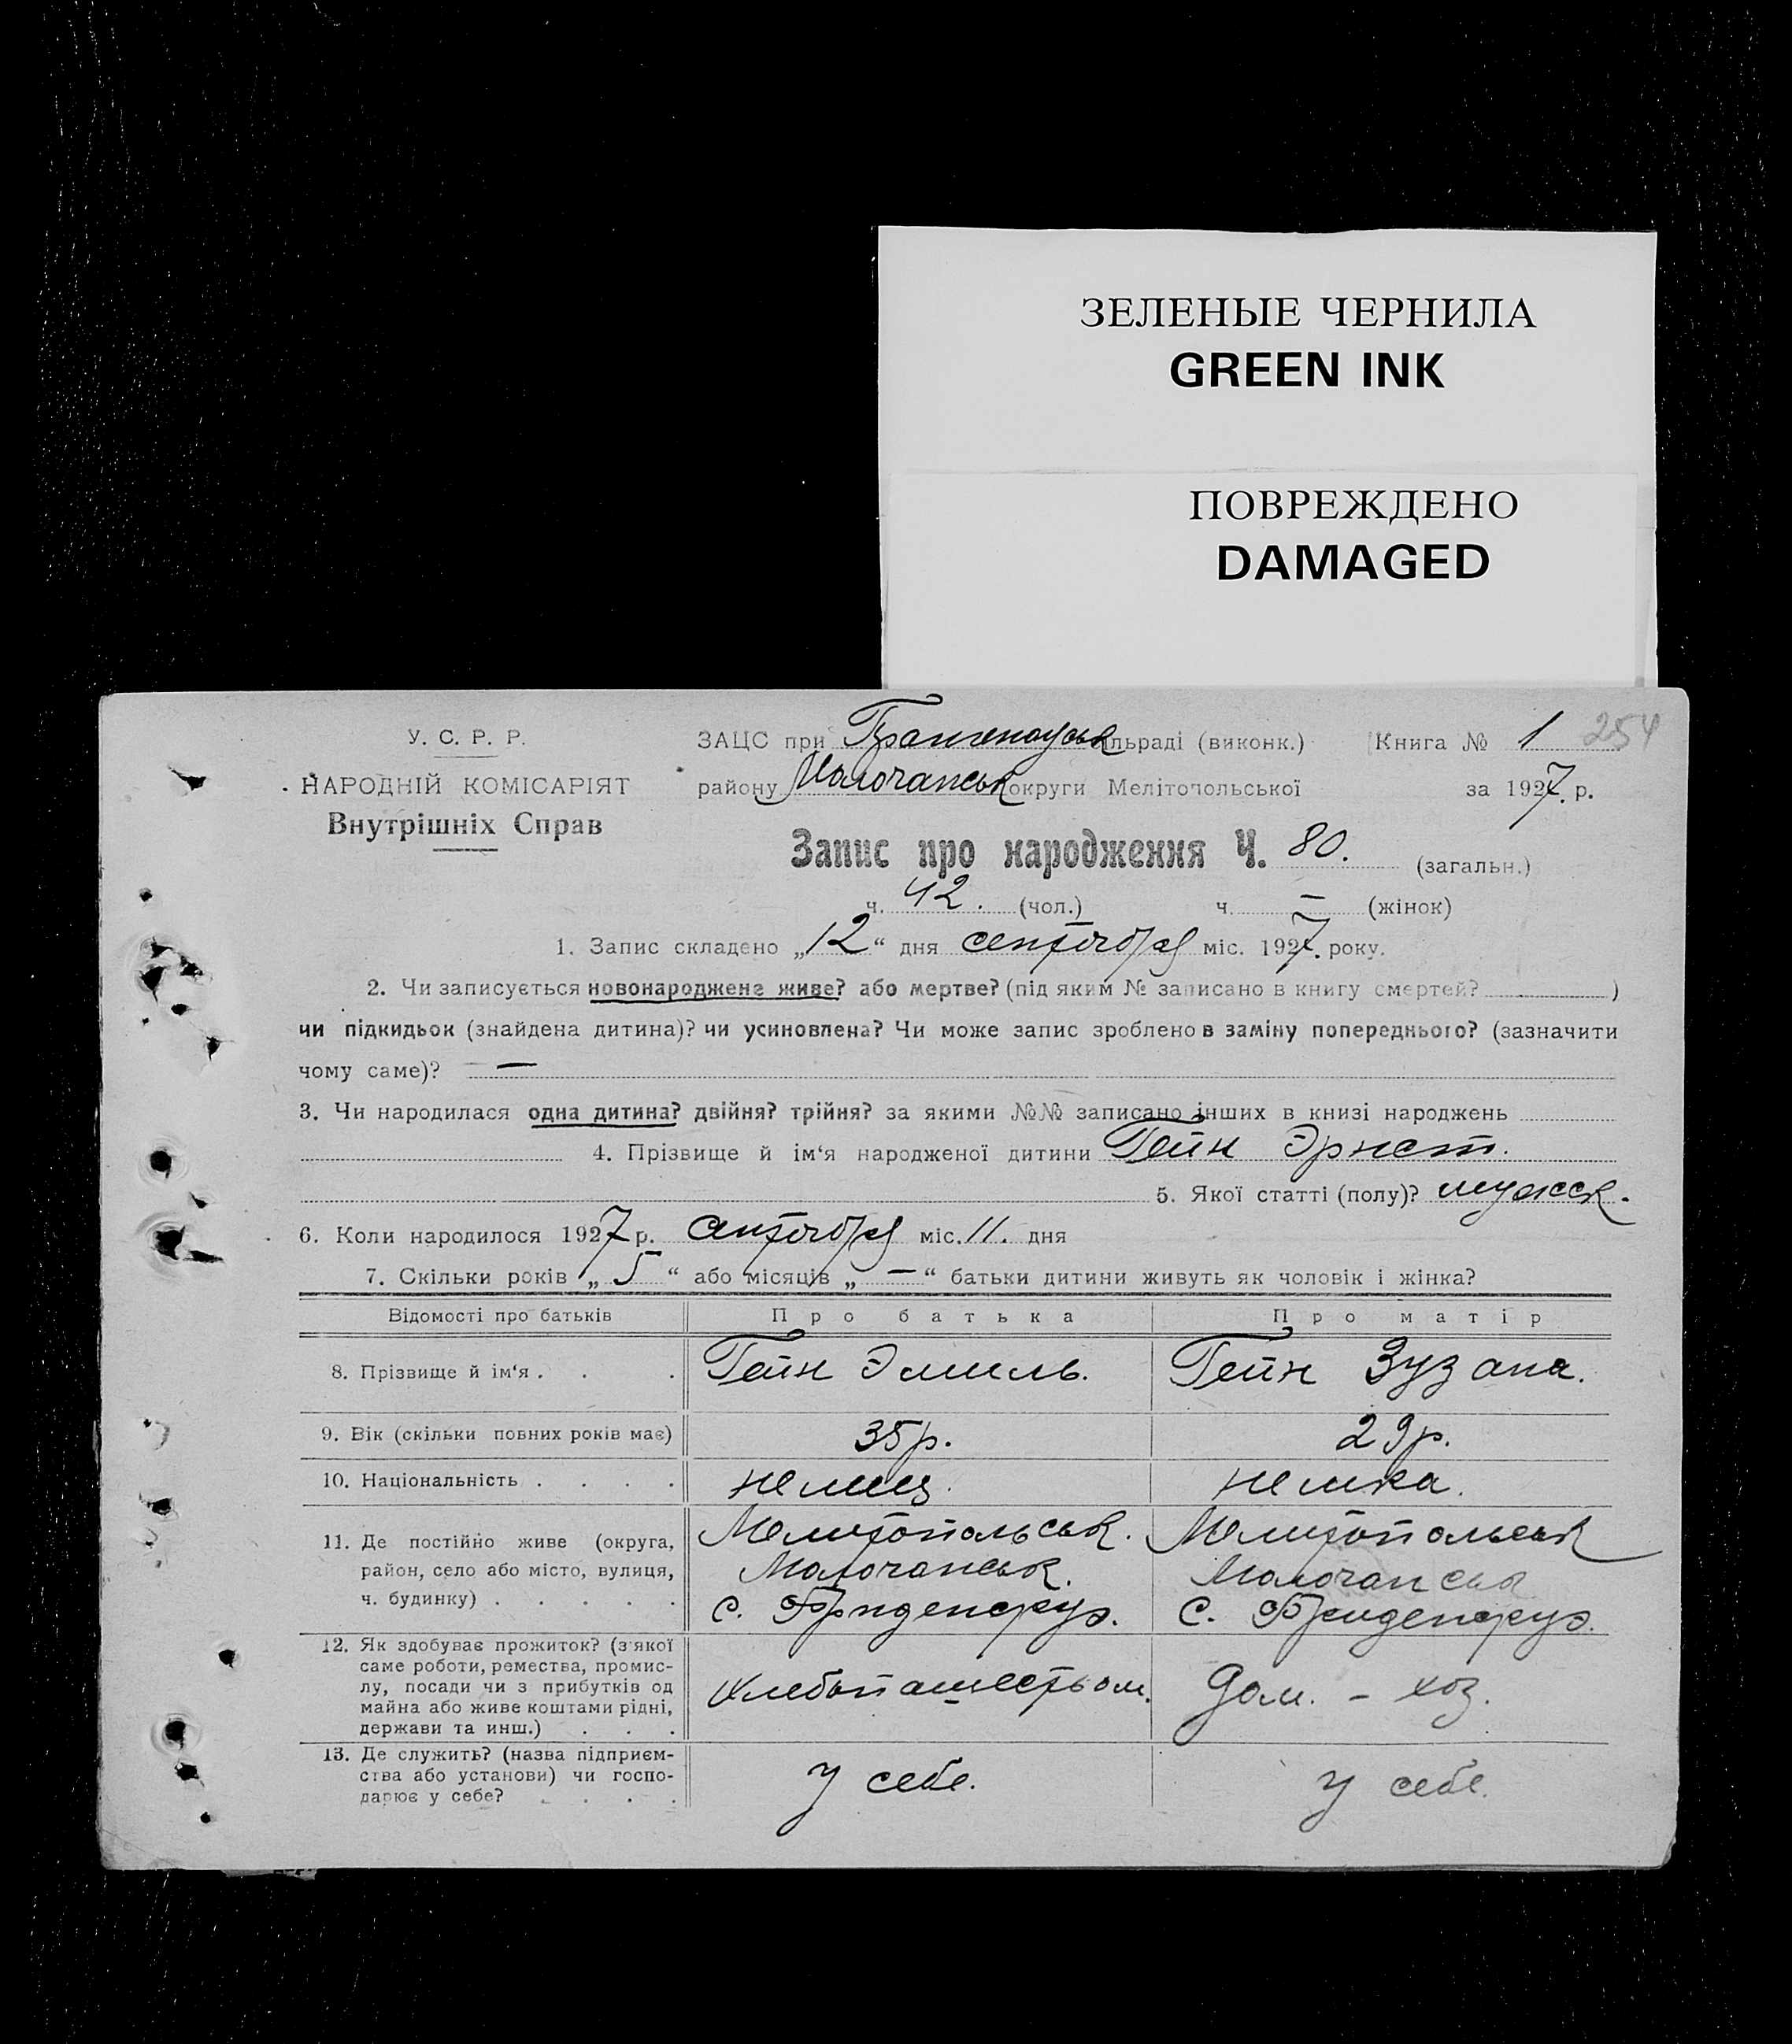 ЗЕЛЕНЫЕ ЧЕРНИЛА
GREEN INK
ПОВРЕЖДЕНО
DAMAGED
У. С. Р. Р.
НАРОДНІЙ КОМІСАРІЯТ
Внутрішніх Справ
ЗАЦС при сільраді (виконк.) Книга № 1 254
району Молочанськ округи Мелітопольської за 1927. р.
Запис про народження Ч. 80. (загальн.)
ч. 42. (чол.) ч. — (жінок)
1. Запис складено „12“ дня сентября міс. 1927. року.
2. Чи записується новонароджене живе? або мертве? (під яким № записано в книгу смертей? )
чи підкидьок (знайдена дитина)? чи усиновлена? Чи може запис зроблено в заміну попереднього? (зазначити
чому саме)? —
3. Чи народилася одна дитина? двійня? трійня? за якими №№ записано інших в книзі народжень
4. Прізвище й ім‘я народженої дитини Гейн Эрнст.
5. Якої статті (полу)? мужск.
6. Коли народилося 1927 р. сентября міс. 11. дня
7. Скільки років „5“ або місяців „—“ батьки дитини живуть як чоловік і жінка?
Відомості про батьків Про батька Про матір
8. Прізвище й ім‘я . . . Гейн Эмиль. Гейн Зузана.
9. Вік (скільки повних років має) 35 р. 29 р.
10. Національність . . . . немец. немка.
11. Де постійно живе (округа,
район, село або місто, вулиця,
ч. будинку) . . . . .
Мелитопольськ.
Молочанськ.
с. Фриденсруэ.
Мелитопольськ
Молочанськ
с. Фриденсруэ.
12. Як здобуває прожиток? (з якої
саме роботи, ремества, промис-
лу, посади чи з прибутків од
майна або живе коштами рідні,
держави та инш.) . . .
Хлебопашеством.
Дом. - хоз.
13. Де служить? (назва підприєм-
ства або установи) чи госпо-
дарює у себе? . . . .
У себе.
У себе.